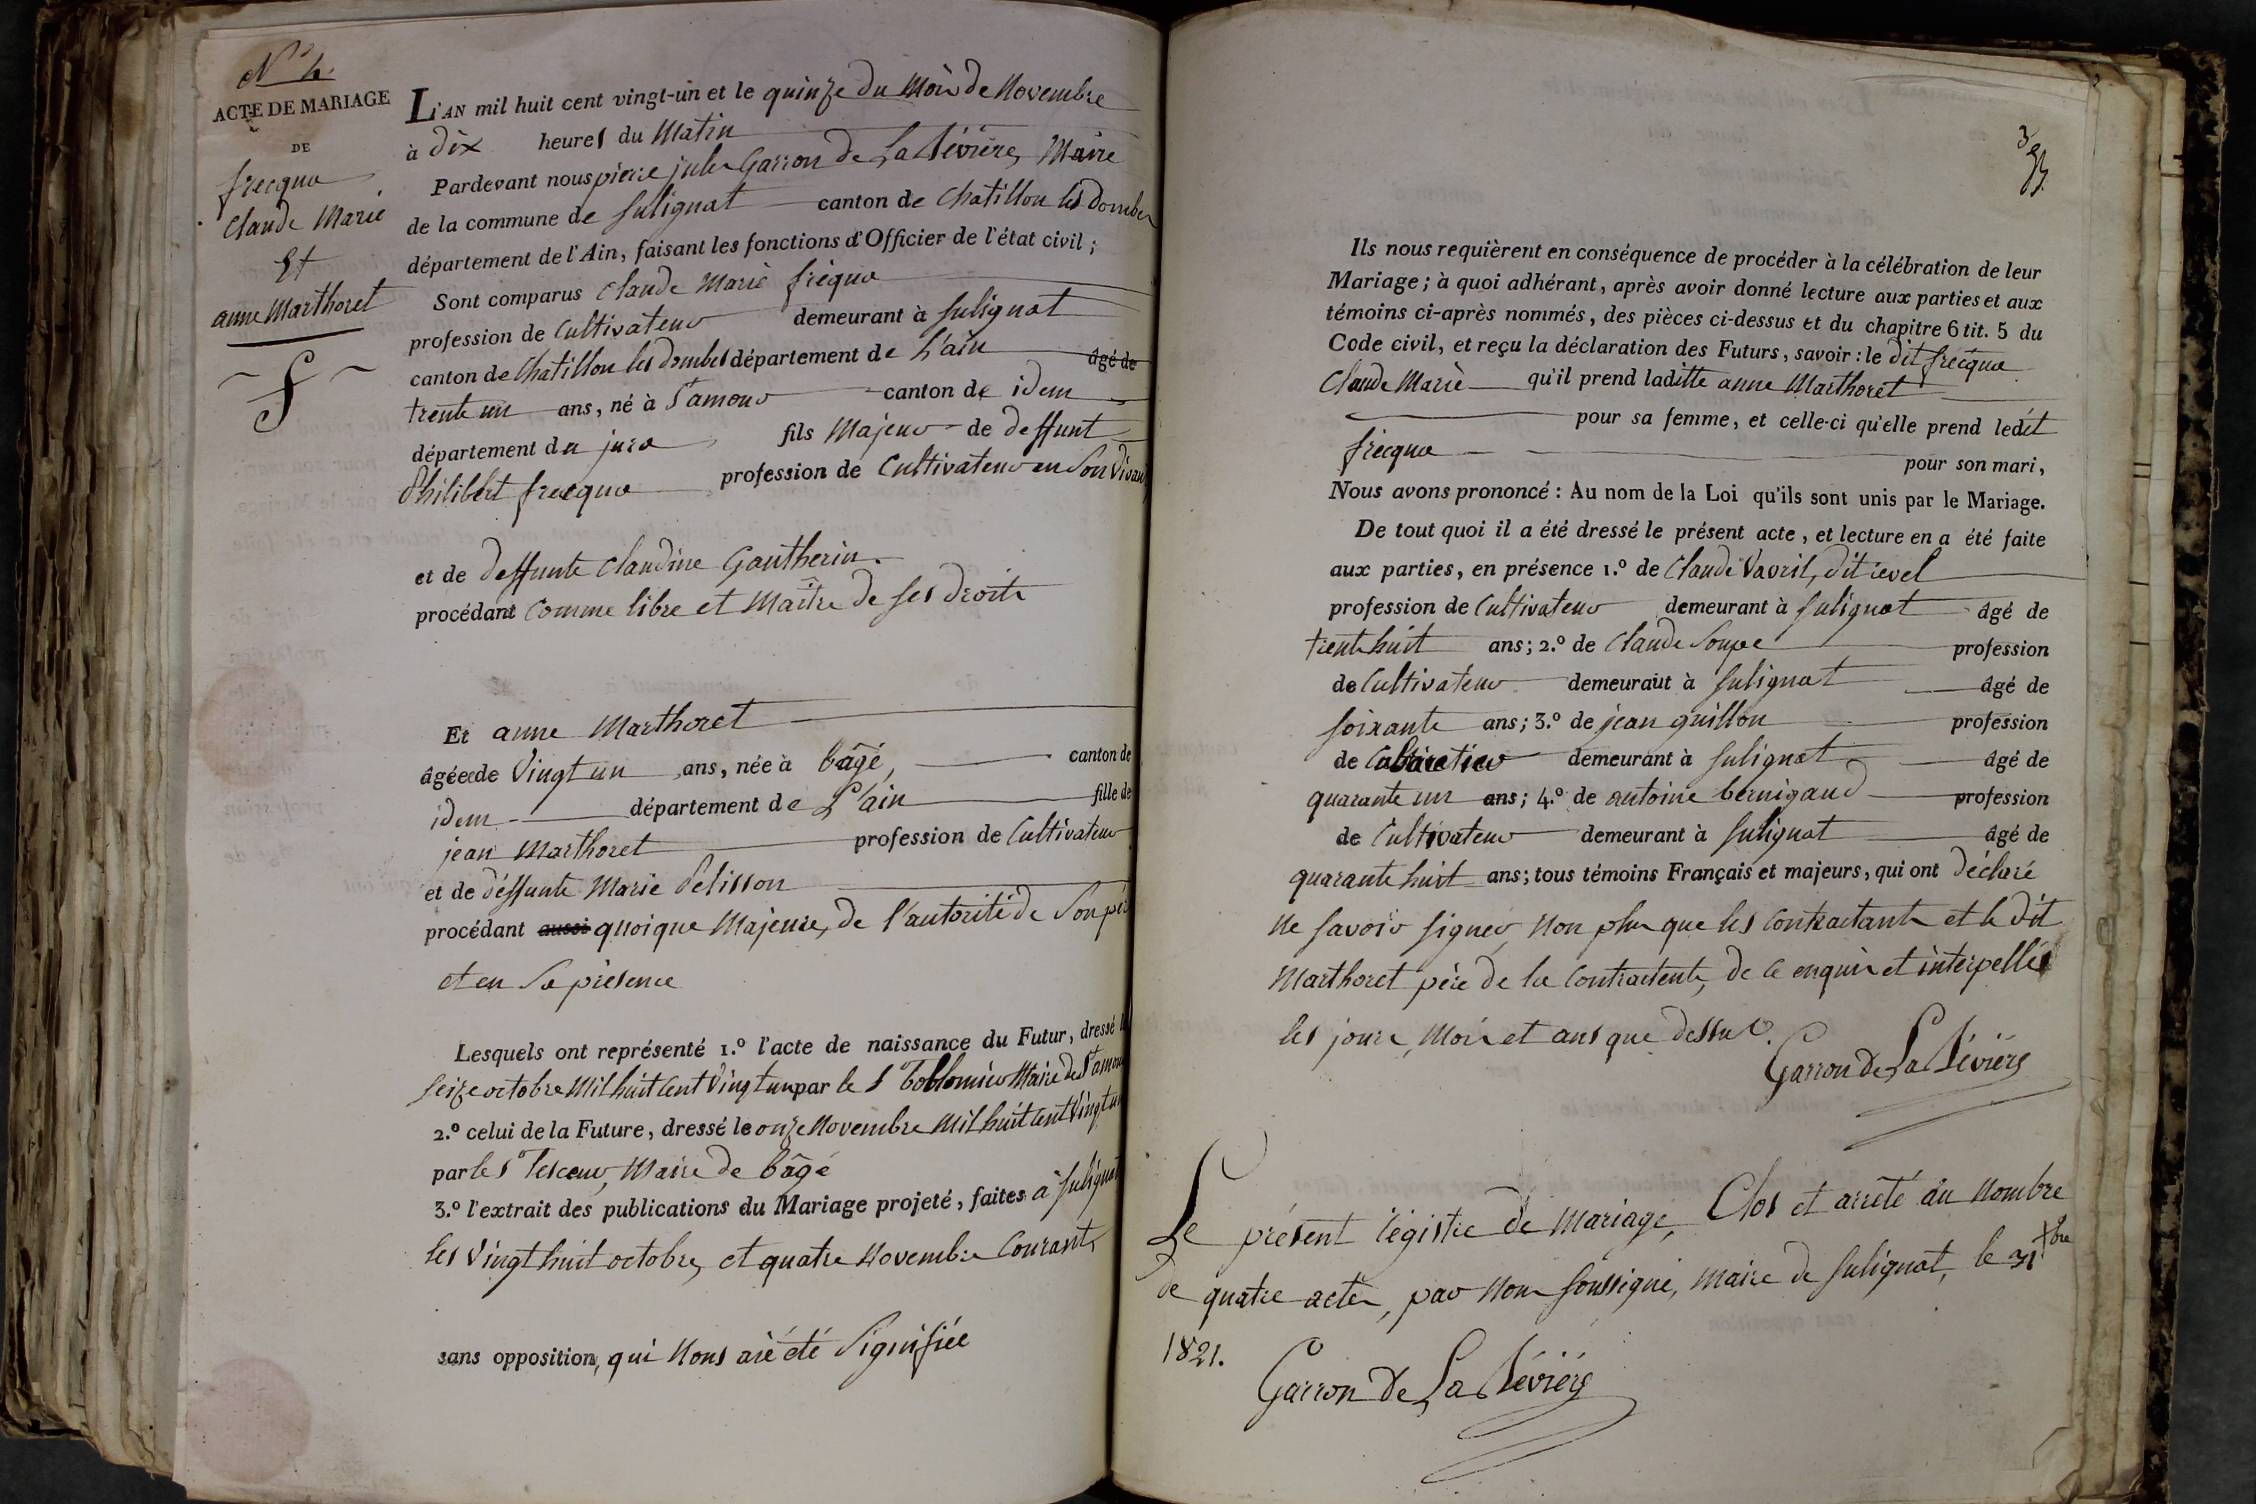 N° 4.
ACTE DE MARIAGE
DE
frecqua
Claude Marie
Et
anne Marthoret
L'AN mil huit cent vingt-un et le quinze du Mois de Novembre
à dix heures du Matin
Pardevant nous pierre jules Garron de La Bévière, Maire
de la commune de Sulignat canton de Chatillon les dombes
département de l'Ain, faisant les fonctions d'Officier de l'état civil;
Sont comparus Claude Marie frécqua
profession de Cultivateur demeurant à Sulignat
canton de Chatillon les dombes département de L'ain âgé de
trente un ans, né à St amour canton de idem
département du jura fils Majeur de deffunt
Philibert frecqua profession de Cultivateur en Son Vivant
et de deffunte Claudine Gautherin.
procédant Comme libre et Maître de ses droits
Et anne Marthoret
âgée de Vingt un ans, née à bâgé, canton de
idem département de L'ain fille de
jean Marthoret profession de Cultivateur
et de déffunte Marie Pelisson
procédant aussi quoique Majeure, de l'autorité de Son père
et en Sa présence
Lesquels ont représenté 1.° l'acte de naissance du Futur, dressé le
Seize octobre Mil huit Cent Vingt un par le Sr Maire de St amour
2.° celui de la Future, dressé le onze Novembre Mil huit Cent Vingt un
par le Sr Maire de bâgé
3.° l'extrait des publications du Mariage projeté, faites à Sulignat
les Vingt huit octobre, et quatre Novembre Courant,
sans opposition, qui Nous aié été Signifiée
Ils nous requièrent en conséquence de procéder à la célébration de leur
Mariage; à quoi adhérant, après avoir donné lecture aux parties et aux
témoins ci-après nommés, des pièces ci-dessus et du chapitre 6 tit. 5 du
Code civil, et reçu la déclaration des Futurs, savoir: le dit frecqua
Claude Marie qu'il prend laditte anne Marthoret
pour sa femme, et celle-ci qu'elle prend ledit
frécqua pour son mari,
Nous avons prononcé: Au nom de la Loi qu'ils sont unis par le Mariage.
De tout quoi il a été dressé le présent acte, et lecture en a été faite
aux parties, en présence 1.° de Claude Vavril, dit revel
profession de Cultivateur demeurant à Sulignat âgé de
trente huit ans; 2.° de Claude Soupe profession
de Cultivateur demeurant à Sulignat âgé de
soixante ans; 3.° de jean guillon profession
de Cabaretier demeurant à Sulignat âgé de
quarante un ans; 4.° de antoine bernigaud profession
de Cultivateur demeurant à Sulignat âgé de
quarante huit ans; tous témoins Français et majeurs, qui ont déclaré
ne savoir signer, Non plus que les Contractants et le dit
Marthoret père de la Contractente, de ce enquis et interpellés
les jour, Mois et ans que dessus.
Garron de La Bévière
Le présent régistre de Mariage, Clos et arrêté au Nombre
de quatre actes, par Nous Soussigné, Maire de Sulignat, le 31 Xbre
1821.
Garron de La Bévière